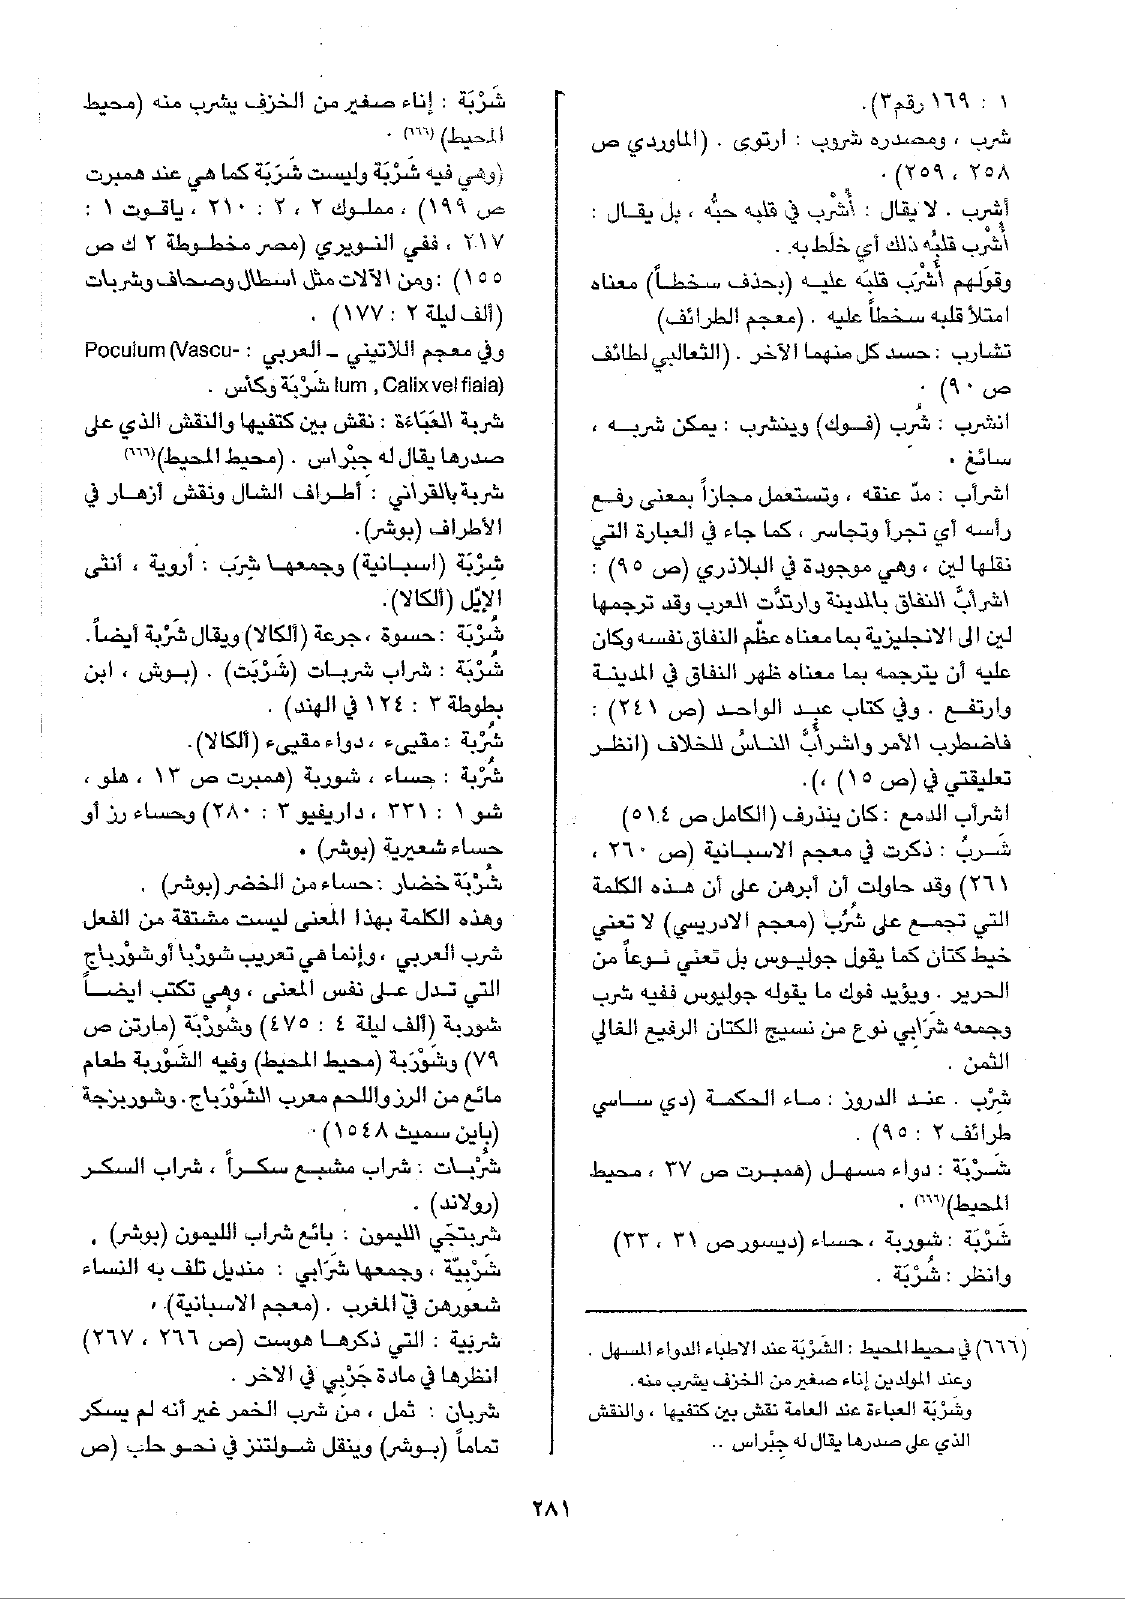 ١ : ١٦٩ رقم ٣).
شرب ، ومصدره شروب : ارتوى . (الماوردي ص
٢٥٨ ، ٢٥٩) .
أشرب . لا يقال : أُشْرِب في قلبه حبُّه ، بل يقال :
أُشْرِب قلبُه ذلك أي خلَط به .
وقولهم أُشْرَب قلبَه عليه (بحذف سخطاً) معناه
امتلأ قلبه سخطاً عليه . (معجم الطرائف)
تشارب : حسد كل منهما الآخر . (الثعالبي لطائف
ص ٩٠) .
انشرب : شُرِب (فوك) وينشرب : يمكن شربه ،
سائغ .
اشرأب : مدّ عنقه ، وتستعمل مجازاً بمعنى رفع
رأسه أي تجرأ وتجاسر ، كما جاء في العبارة التي
نقلها لين ، وهي موجودة في البلاذري (ص ٩٥) :
اشرأبَّ النفاق بالمدينة وارتدَّت العرب وقد ترجمها
لين الى الانجليزية بما معناه عظّم النفاق نفسه وكان
عليه أن يترجمه بما معناه ظهر النفاق في المدينة
وارتفع . وفي كتاب عبد الواحد (ص ٢٤١) :
فاضطرب الأمر واشرأبُّ الناسُ للخلاف (انظر
تعليقتي في (ص ١٥) ،).
اشرأب الدمع : كان يتذرف (الكامل ص ٥١٤)
شَرِبُ : ذكرت في معجم الاسبانية (ص ٢٦٠ ،
٢٦١) وقد حاولت أن أبرهن على أن هذه الكلمة
التي تجمع على شُرُب (معجم الادريسي) لا تعني
خيط كتان كما يقول جوليوس بل تعني نوعاً من
الحرير . ويؤيد فوك ما يقوله جوليوس ففيه شرب
وجمعه شَرَابي نوع من نسيج الكتان الرفيع الغالي
الثمن .
شِرْب . عند الدروز : ماء الحكمة (دي ساسي
طرائف ٢ : ٩٥) .
شَرْبَة : دواء مسهل (همبرت ص ٣٧ ، محيط
المحيط)(٦٦٦) .
شَرْبَة : شوربة ، حساء (ديسور ص ٣١ ، ٣٣)
وانظر : شُرْبَة .
(٦٦٦) في محيط المحيط : الشَرْبَة عند الاطباء الدواء المسهل .
وعند المولدين إناء صغير من الخزف يشرب منه.
وشَرْبَة العباءة عند العامة نقش بين كتفيها ، والنقش
الذي على صدرها يقال له جِبْراس ..
شَرْبَة : إناء صغير من الخزف يشرب منه (محيط
المحيط)(٦٦٦) .
(وهي فيه شَرْبَة وليست شَرِبَة كما هي عند همبرت
ص ١٩٩) ، مملوك ٢ ، ٢ : ٢١٠ ، ياقوت ١ :
٢١٧ ، ففي النويري (مصر مخطوطة ٢ ك ص
١٥٥) : ومن الآلات مثل اسطال وصحاف وشربات
(ألف ليلة ٢ : ١٧٧) .
وفي معجم اللاتيني - العربي : Poculum (Vascu-
lum , Calix vel fiala) شَرْبَة وكأس .
شربة العَبَاءة : نقش بين كتفيها والنقش الذي على
صدرها يقال له جِبْراس . (محيط المحيط)(٦٦٦)
شربة بالقراني : أطراف الشال ونقش أزهار في
الأطراف (بوشر).
شِرْبَة (اسبانية) وجمعها شِرَب : أروية ، أنثى
الإيّل (ألكالا).
شُرْبَة : حسوة ، جرعة (ألكالا) ويقال شَرْبة أيضاً.
شُرْبَة : شراب شربات (شَرْبَت) . (بوش ، ابن
بطوطة ٣ : ١٢٤ في الهند) .
شُرْبة : مقيىء ، دواء مقيىء (ألكالا).
شُرْبة : حساء ، شوربة (همبرت ص ١٣ ، هلو ،
شو ١ : ٣٣١ ، داريفيو ٣ : ٢٨٠) وحساء رز أو
حساء شعيرية (بوشر) .
شُرْبَة خضار : حساء من الخضر (بوشر) .
وهذه الكلمة بهذا المعنى ليست مشتقة من الفعل
شرب العربي ، وإنما هي تعريب شورْبا أو شورْباج
التي تدل على نفس المعنى ، وهي تكتب أيضاً
شوربة (ألف ليلة ٤ : ٤٧٥) وشُورْبَة (مارتن ص
٧٩) وشَوْرَبة (محيط المحيط) وفيه الشَوْربة طعام
مائع من الرز واللحم معرب الشَوْرَباج . وشوربزجة
(باين سميث ١٥٤٨) .
شُرْبات : شراب مشبع سكراً ، شراب السكر
(رولاند) .
شربتجي الليمون : بائع شراب الليمون (بوشر) .
شَرْبِيّة ، وجمعها شَرَابي : منديل تلف به النساء
شعورهن في المغرب . (معجم الاسبانية) .
شربية : التي ذكرها هوست (ص ٢٦٦ ، ٢٦٧)
انظرها في مادة جَرْبي في الآخر .
شربان : ثمل ، من شرب الخمر غير أنه لم يسكر
تماماً (بوشر) وينقل شولتنز في نحو حلب (ص
٢٨١